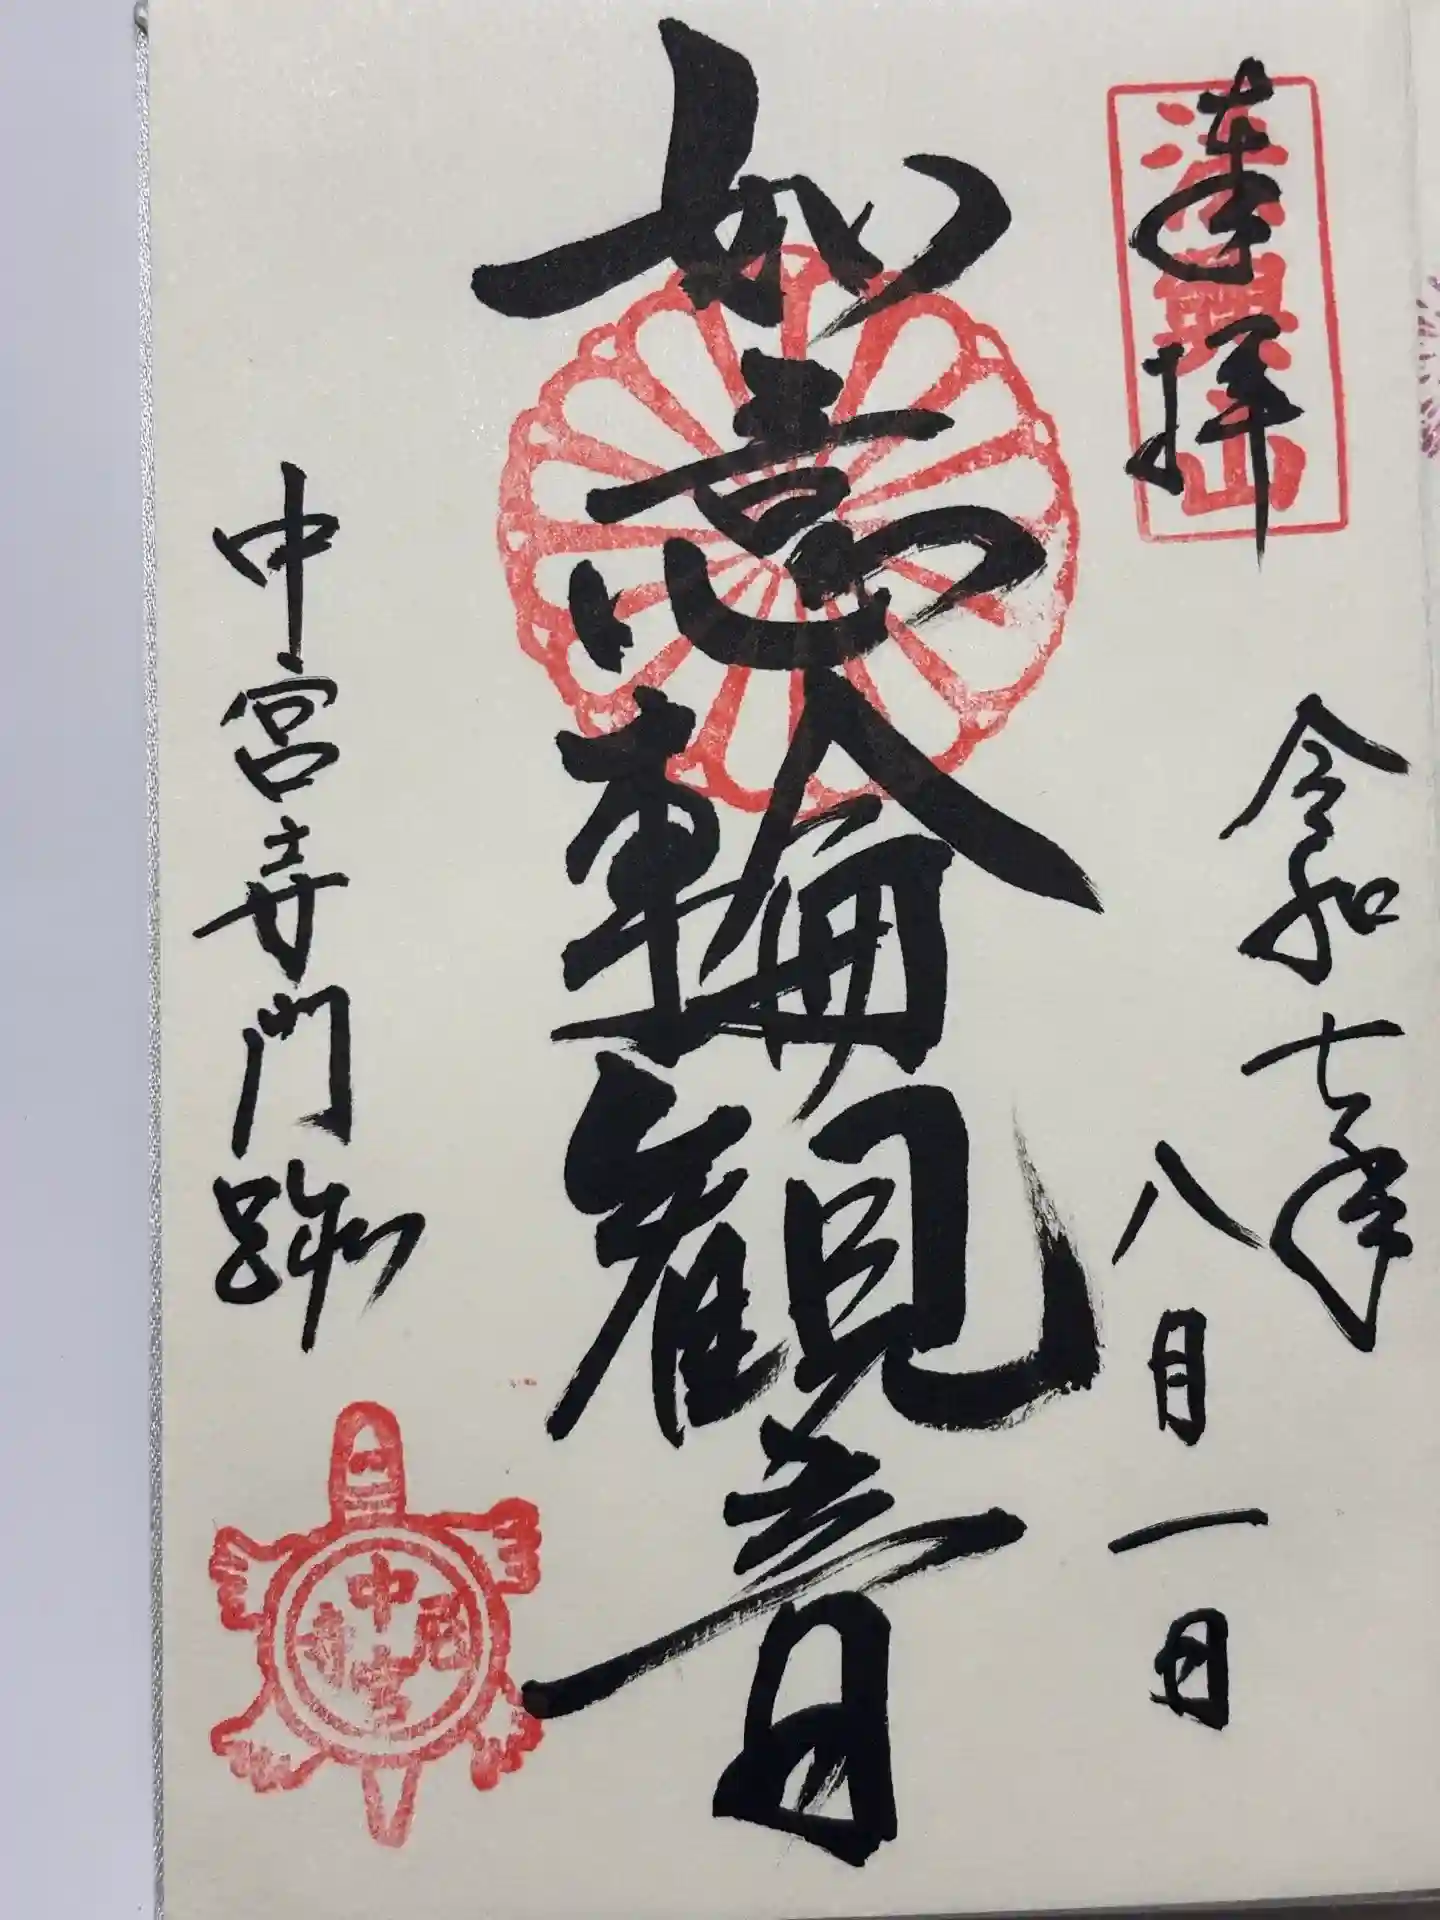 奉拝
法興山
令和七年
八月一日
如意輪観音
中宮寺門跡
中宮寺印